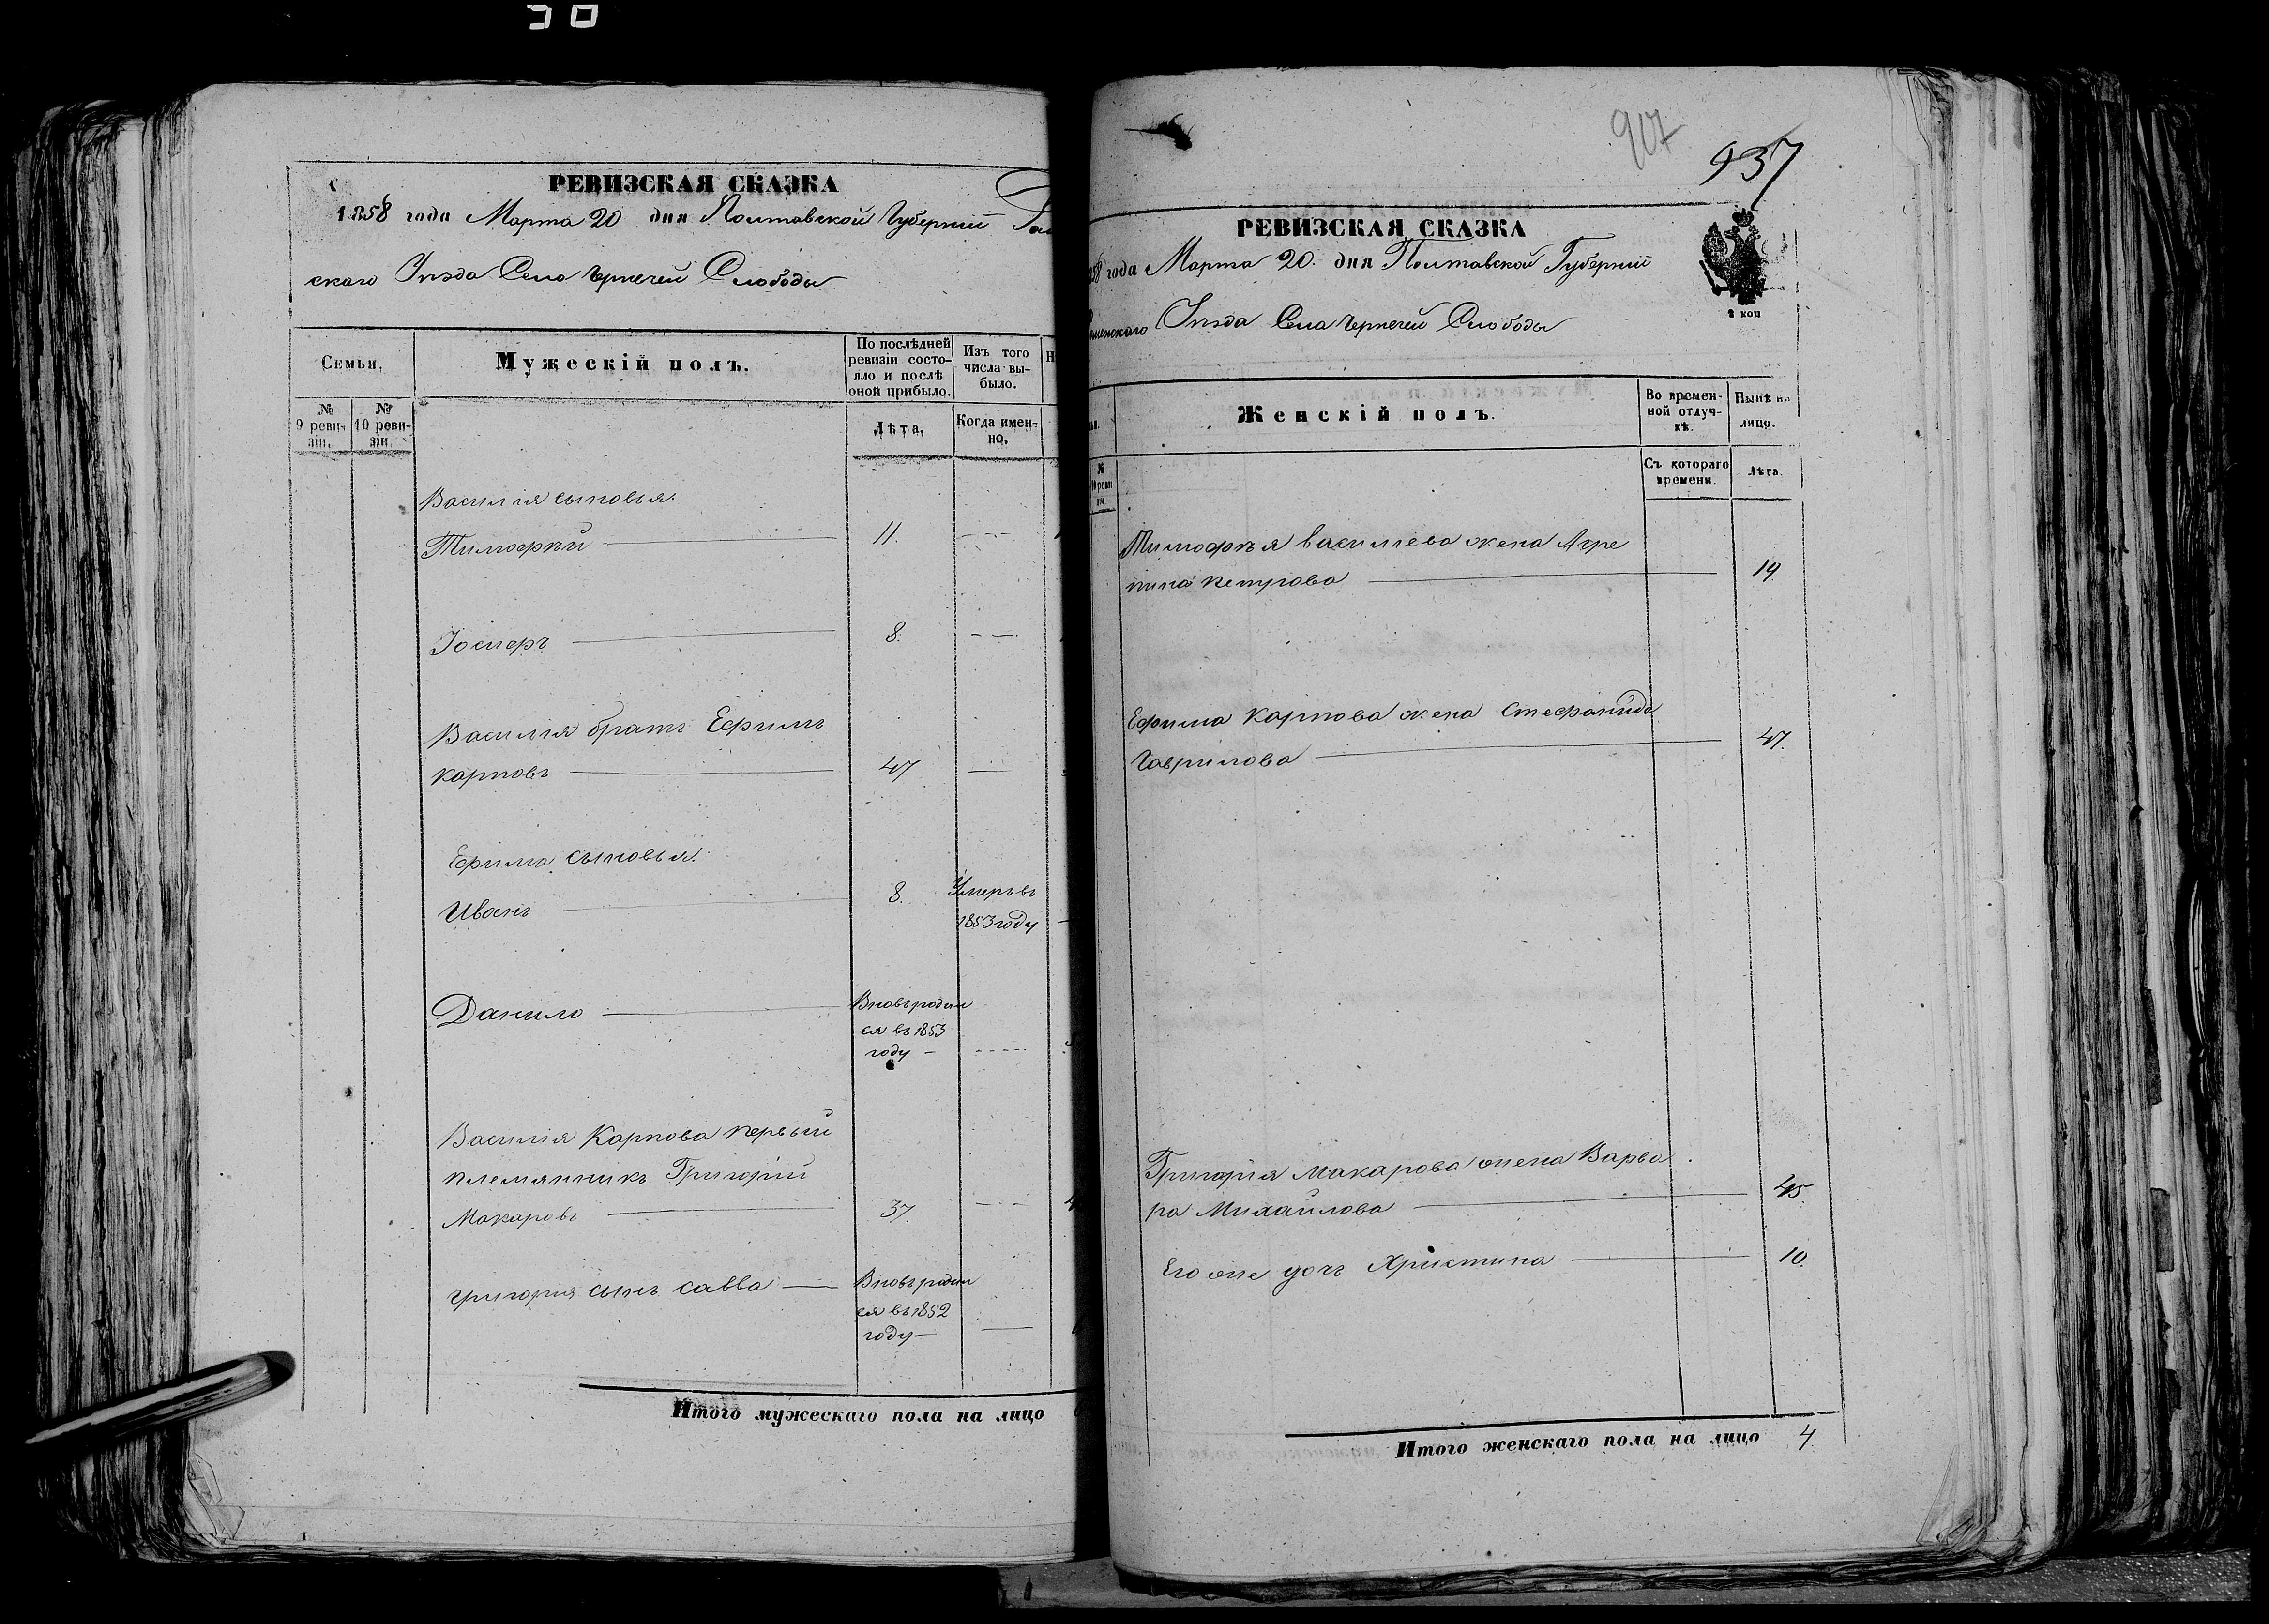 РЕВИЗСКАЯ СКАЗКА
1858 года Марта 20 дня Полтавской Губернии
скаго Уѣзда Села Чернечей Слободы
Семьи,
Мужескій полъ.
По послѣдней
ревизіи состо-
яло и послѣ
оной прибыло.
Изъ того
числа вы-
было.
№
9 реви-
зіи.
№
10 реви-
зіи.
Лѣта,
Когда имен-
но,
Василія сыновья:
Тимофѣй 11.
Іосифъ 8.
Василія братъ Ефимъ
Карповъ 47
Ефима сыновья:
Иванъ 8. Умеръ въ
1853 году
Данило Вновь родил
ся въ 1853
году
Василія Карпова первый
племянникъ Григорій
Макаровъ 37.
Григорія сынъ Савва Вновь родил
ся въ 1852
году
Итого мужескаго пола на лицо
907
937
РЕВИЗСКАЯ СКАЗКА
года Марта 20. дня Полтавской Губерніи
менскаго Уѣзда Села Чернечей Слободы
2 коп
Женскій полъ.
Во времен-
ной отлуч-
кѣ.
Нынѣ на
лицо.
№
Съ котораго
времени.
Лѣта.
Тимофѣя Василіева жена Агре
пина Петрова 19.
Ефима Карпова жена Стефанида
Гаврилова 47.
Григорія Макарова жена Варва
ра Михайлова 45.
Его же дочь Христина 10.
Итого женскаго пола на лицо 4